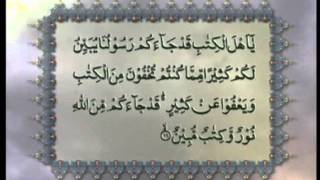 يٰۤاَهْلَ الْكِتٰبِ قَدْ جَآءَكُمْ رَسُوْلُنَا يُبَيِّنُ
لَكُمْ كَثِيْرًا مِّمَّا كُنْتُمْ تُخْفُوْنَ مِنَ الْكِتٰبِ
وَيَعْفُوْا عَنْ كَثِيْرٍ ؕ قَدْ جَآءَكُمْ مِّنَ اللّٰهِ
نُوْرٌ وَّكِتٰبٌ مُّبِيْنٌ